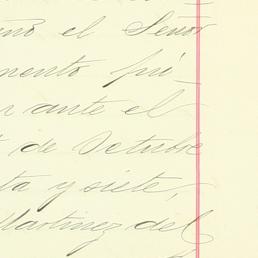 el Señor
mento pú-
ante el
de Octubre
ta y siete,
Martinez del